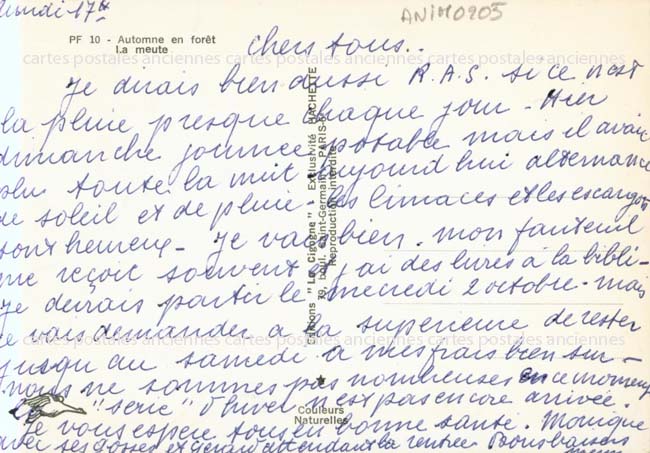 lundi 17h
ANIM0905
PF 10 - Automne en forêt
La meute
chers tous..
cartes postales anciennes cartes postales anciennes cartes postales anciennes
Je dirais bien aussi R.A.S. si ce n'est
la pluie presque chaque jour - Hier
dimanche journée potable mais il avait
plu toute la nuit aujourd'hui alternance
de soleil et de pluie - les limaces et les escargots
sont heureux - Je vais bien. mon fauteuil
me reçoit souvent et j'ai des livres à la bibli-
Je devrais partir le mercredi 2 octobre - mais
je vais demander à la supérieure de rester
cartes postales anciennes cartes postales anciennes cartes postales anciennes
jusqu'au samedi à mes frais bien sûr -
nous ne sommes pas nombreuses en ce moment
la "série" d'hiver n'est pas encore arrivée.
Je vous espère tous en bonne santé. Monique
avec ses gosses et Gérard attendant la rentrée Bons baisers
Editions "La Cigogne" - Exclusivité HACHETTE
79, boul. Saint-Germain - PARIS-6e
Reproduction interdite
Couleurs
Naturelles